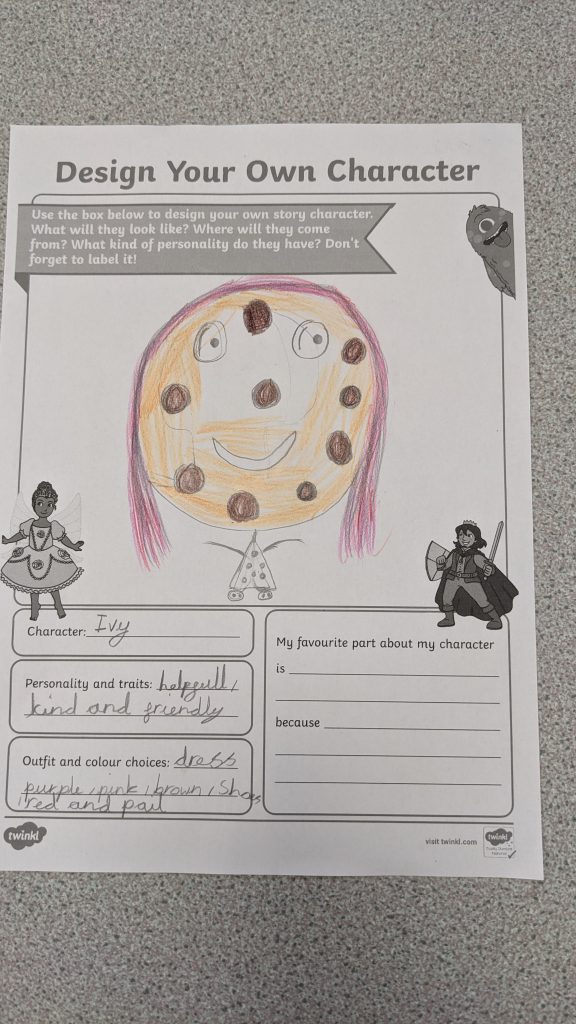 Design Your Own Character
Use the box below to design your own story character.
What will they look like? Where will they come
from? What kind of personality do they have? Don't
forget to label it!
Character: Ivy
Personality and traits: helpfull,
kind and friendly
Outfit and colour choices: dress
purple, pink, brown, Shoes
red and
My favourite part about my character
is
because
twinkl
visit twinkl.com
twinkl